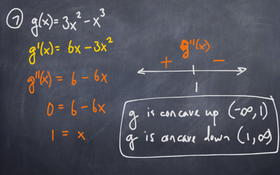 7 g(x) = 3x² - x³
g'(x) = 6x - 3x²
g''(x) = 6 - 6x
0 = 6 - 6x
1 = x
g''(x)
+ -
1
g is concave up (-∞, 1)
g is concave down (1, ∞)